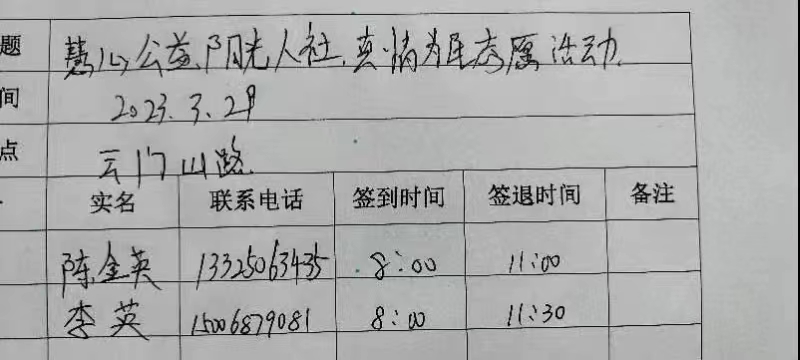 题 慧心公益,阳光人社,真情为民志愿活动.
间 2023.3.29
点 云门山路.
实名 联系电话 签到时间 签退时间 备注
陈金英 13325063435 8:00 11:00
李英 15006879081 8:00 11:30